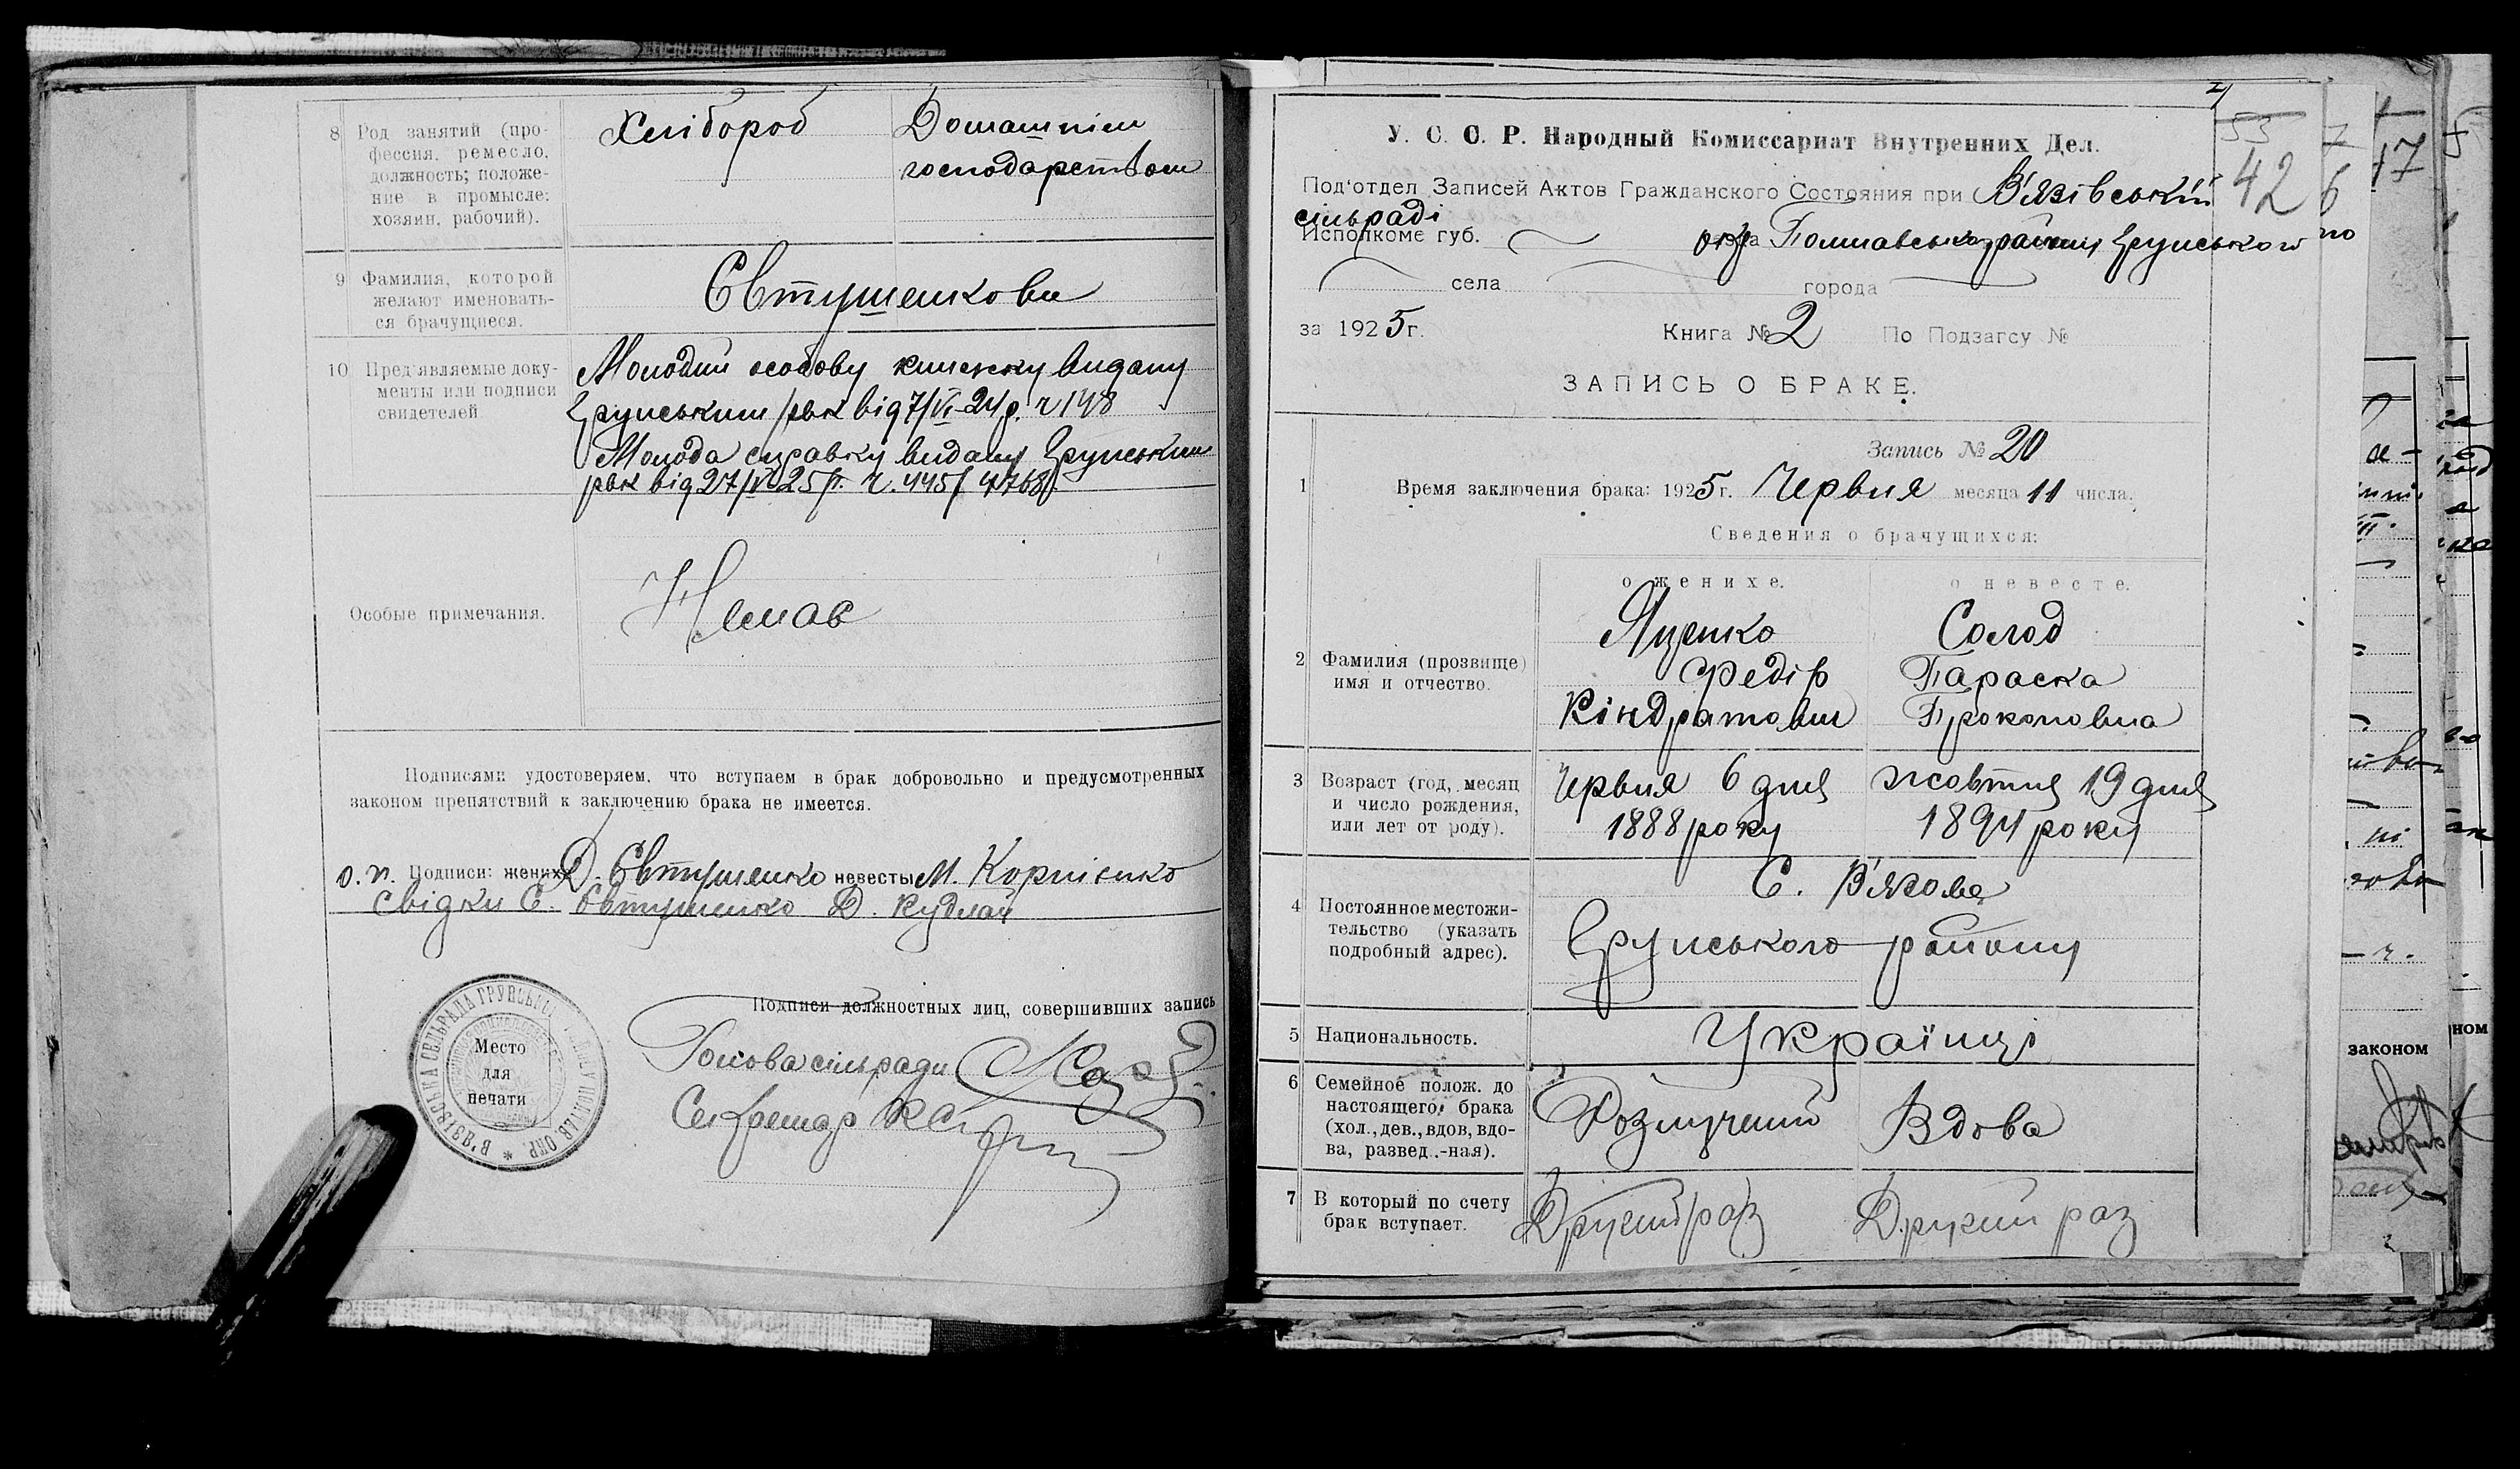 8 Род занятий (про-
фессия, ремесло,
должность; положе-
ние в промысле:
хозяин, рабочий).
Хлібороб
Домашнім
господарством
9 Фамилия, которой
желают именовать-
ся брачущиеся.
Євтушенкови
10 Пред'являемые доку-
менты или подписи
свидетелей
Молодий особову книжку видану
Грунським рвк від 7/VI-24р. ч 148
Молода справку видану Грунським
рвк від 27/VI 25р. ч. 445/4768
Особые примечания.
Немає
Подписями удостоверяем, что вступаем в брак добровольно и предусмотренных
законом препятствий к заключению брака не имеется.
о. п. Подписи: жениха Д. Євтушенко невесты М. Корнієнко
свідки Є. Євтушенко Д. Кудлай
Подписи должностных лиц, совершивших запись
Голова сільради
Секретар
В'ЯЗІВСЬКА СЕЛЬРАДА ГРУНСЬК
ПОЛТАВ. ОКР.
Место
для
печати
53
42
У. С. С. Р. Народный Комиссариат Внутренних Дел.
Под'отдел Записей Актов Гражданского Состояния при В'язівській
сільраді
Исполкоме губ. окр Полтавської района Грунського
села города
за 1925 г. Книга № 2 По Подзагсу №
ЗАПИСЬ О БРАКЕ.
Запись № 20
1 Время заключения брака: 1925 г. Червня месяца 11 числа.
Сведения о брачущихся:
о женихе. о невесте.
2 Фамилия (прозвище)
имя и отчество.
Яценко
Федір
Кіндратович
Солод
Параска
Прокоповна
3 Возраст (год, месяц
и число рождения,
или лет от роду).
Червня 6 дня
1888 року
жовтня 19 дня
1894 року
4 Постоянное местожи-
тельство (указать
подробный адрес).
С. В'язове
Грунського району
5 Национальность.
Українці
6 Семейное полож. до
настоящего брака
(хол., дев., вдов, вдо-
ва, развед.-ная).
Розлучений
Вдова
7 В который по счету
брак вступает.
Другий раз
Другий раз
17
законом
ном